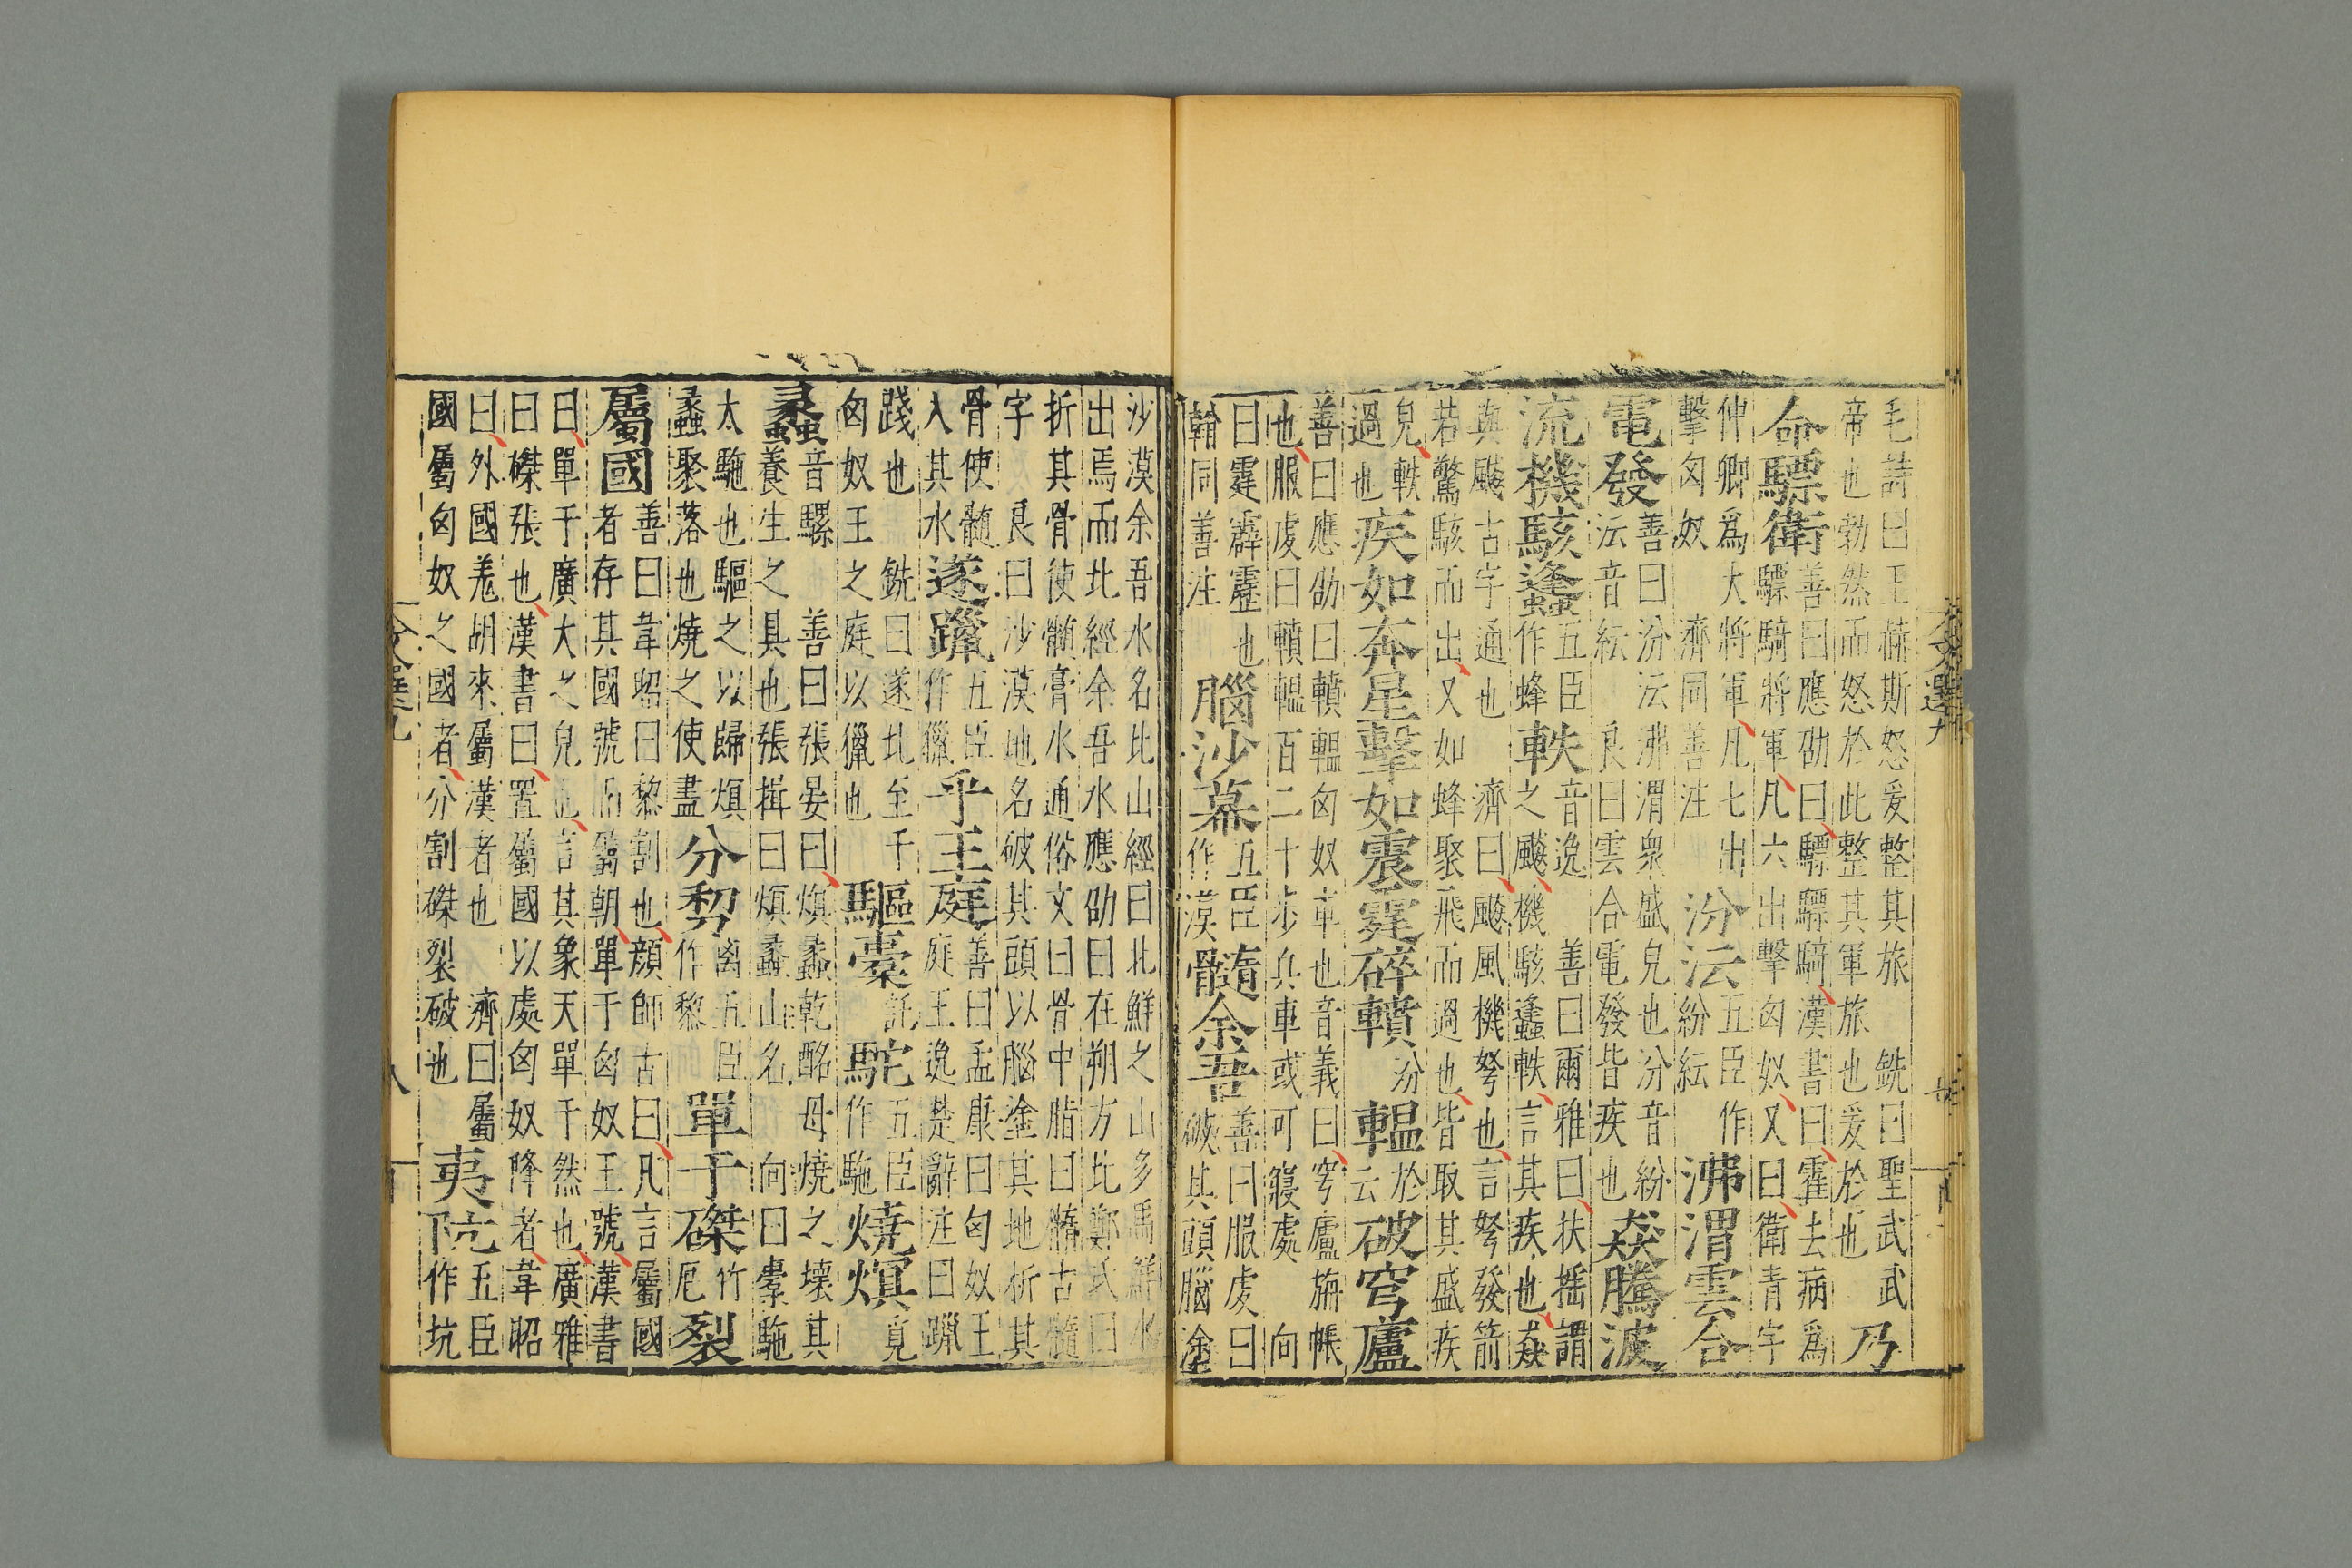 毛詩曰王赫斯怒爰整其旅 銑曰聖武武
帝也勃然而怒於此整其軍旅也爰於也
乃
命驃衛
善曰應劭曰驃驃騎漢書曰霍去病爲
驃騎將軍凡六出擊匈奴又曰衛青字
仲卿爲大將軍凡七出
擊匈奴 濟同善注
汾沄
五臣作
紛紜
沸渭雲合
電發
善曰汾沄沸渭衆盛皃也汾音紛
沄音紜 良曰雲合電發皆疾也
猋騰波
流機駭蠭
五臣
作蜂
軼
音逸 善曰爾雅曰扶搖謂
之飈機駭蠭軼言其疾也猋
與飈古字通也 濟曰飈風機弩也言弩發箭
若驚駭而出又如蜂聚飛而過也皆取其盛疾
皃軼
過也
疾如奔星擊如震霆碎轒
汾
轀
於
云
破穹廬
善曰應劭曰轒轀匈奴車也音義曰穹廬旃帳
也服虔曰轒轀百二十步兵車或可寢處 向
曰霆霹靂也
翰同善注
腦沙幕
五臣
作漠
髓余吾
善曰服虔曰
破其頭腦塗
沙漠余吾水名北山經曰北鮮之山多馬鮮水
出焉而北經余吾水應劭曰在朔方北鄭氏曰
折其骨使髓膏水通俗文曰骨中脂曰髓古髓
字 良曰沙漠地名破其頭以腦塗其地析其
骨使髓
入其水
遂躐
五臣
作獵
乎王庭
善曰孟康曰匈奴王
庭王逸楚辭注曰躐
踐也 銑曰遂北至千
匈奴王之庭以獵也
驅橐
託
駝
五臣
作駞
燒熐
覓
蠡
音騾 善曰張晏曰熐蠡乾酪母燒之壞其
養生之具也張揖曰熐蠡山名 向曰橐駞
太駞也驅之以歸熐
蠡聚落也燒之使盡
分剺
离五臣
作黎
單于磔
竹
厄
裂
屬國
善曰韋昭曰黎割也顔師古曰凡言屬國
者存其國號而屬朝單于匈奴王號漢書
曰單于廣大之皃也言其象天單于然也廣雅
曰磔張也漢書曰置屬國以處匈奴降者韋昭
曰外國羌胡來屬漢者也 濟曰屬
國屬匈奴之國者分割磔裂破也
夷阬
五臣
作坑